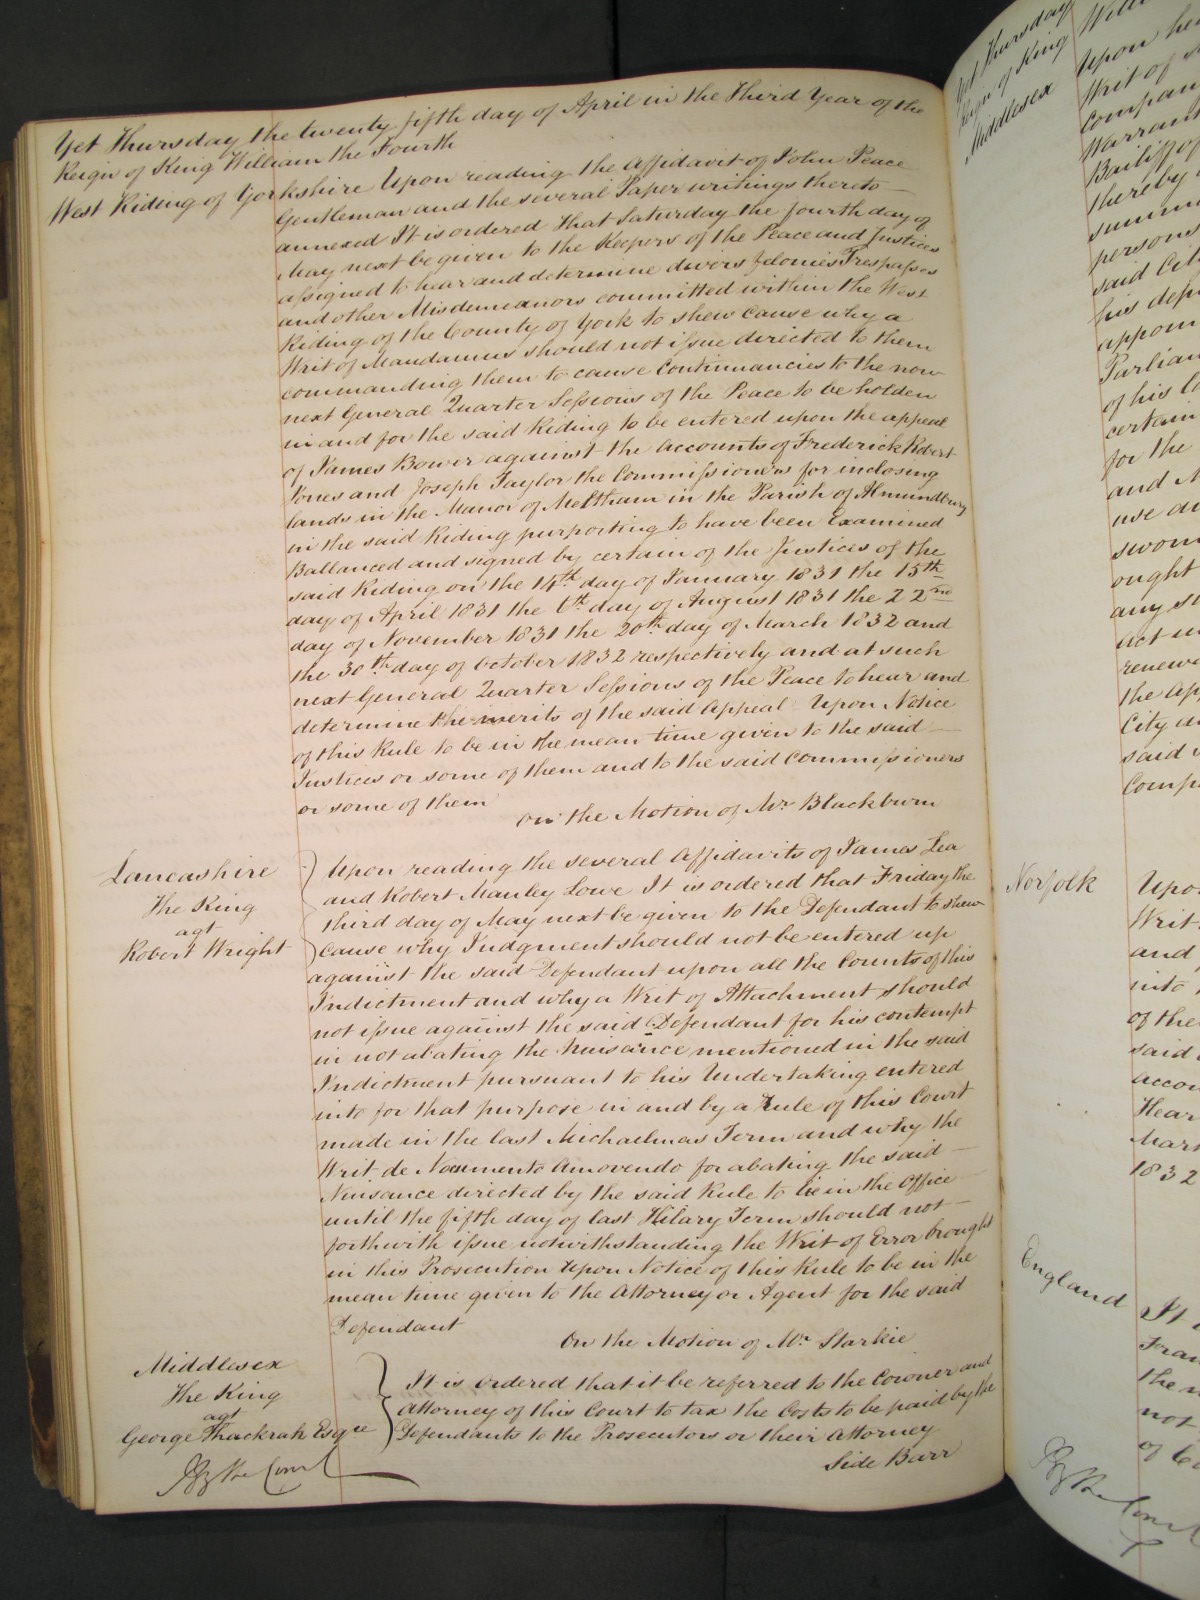 Yet Thursday the twenty fifth day of April in the Third Year of the
Reign of King William the Fourth
West Riding of Yorkshire Upon reading the Affidavit of John Peace
Gentleman and the several Paper writings thereto
annexed It is ordered that Saturday the fourth day of
May next be given to the Keepers of the Peace and Justices
assigned to hear and determine divers felonies Trespasses
and other Misdemeanors committed within the West
Riding of the County of York to shew cause why a
Writ of Mandamus should not issue directed to them
commanding them to cause Continuancies to the now
next General Quarter Sessions of the Peace to be holden
in and for the said Riding to be entered upon the appeal
of James Bower against the Accounts of Frederick Robert
Jones and Joseph Taylor the Commissioners for inclosing
lands in the Manor of Meltham in the Parish of Almundbury
in the said Riding purporting to have been Examined
Ballanced and signed by certain of the Justices of the
said Riding on the 14th day of January 1831 the 15th
day of April 1831 the 6th day of August 1831 the 22nd
day of November 1831 the 20th day of March 1832 and
the 30th day of October 1832 respectively and at such
next General Quarter Sessions of the Peace to hear and
determine the merits of the said Appeal Upon Notice
of this Rule to be in the mean time given to the said
Justices or some of them and to the said Commissioners
or some of them
On the Motion of Mr Blackburn
Lancashire
The King
agt
Robert Wright
Upon reading the several Affidavits of James Lea
and Robert Manley Lowe It is ordered that Friday the
third day of May next be given to the Defendant to shew
cause why Judgment should not be entered up
against the said Defendant upon all the Counts of this
Indictment and why a Writ of Attachment should
not issue against the said Defendant for his contempt
in not abating the Nuisance mentioned in the said
Indictment pursuant to his Undertaking entered
into for that purpose in and by a Rule of this Court
made in the last Michaelmas Term and why the
Writ de Nocumento Amovendo for abating the said
Nuisance directed by the said Rule to lie in the Office
until the fifth day of last Hilary Term should not
forthwith issue notwithstanding the Writ of Error brought
in this Prosecution Upon Notice of this Rule to be in the
mean time given to the Attorney or Agent for the said
Defendant
On the Motion of Mr Starkie
Middlesex
The King
agt
George Thackrah Esqre
It is ordered that it be referred to the Coroner and
Attorney of this Court to tax the Costs to be paid by the
Defendants to the Prosecutors or their Attorney
Side Barr
By the Court
Yet Thursday
Reign of King
Middlesex
Upon
Writ of
Warrant
Bailiff of
thereby
persons
said City
his
of his
certain
for the
and
use
sworn
ought
any
act
the
City
said
Norfolk
Writ
and
into
of the
said
1832
England
It
the
not
of
By the Court